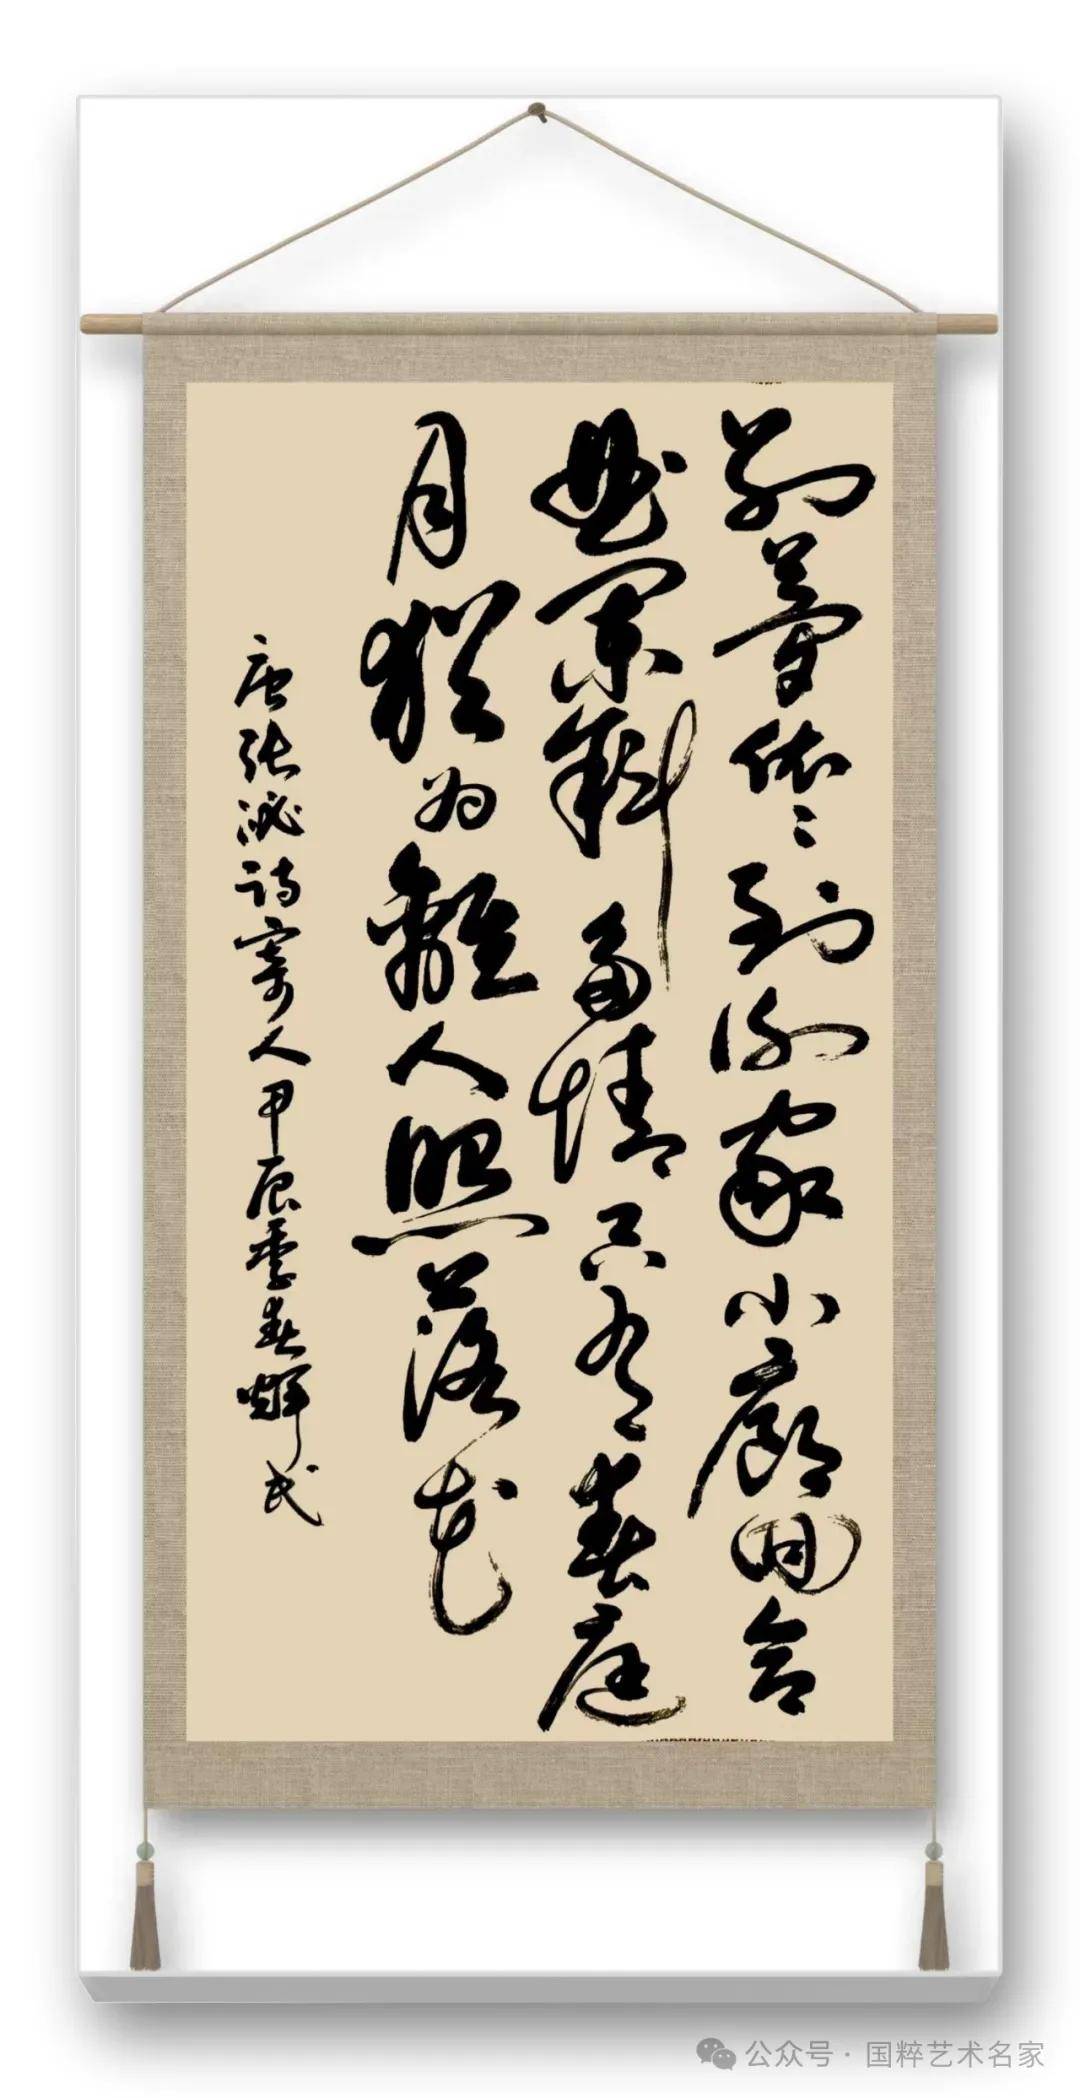 别梦依依到谢家小廊回合
曲阑斜多情只有春庭
月猶为離人照落花
唐张泌诗寄人甲辰季春辉
公众号·国粹艺术名家